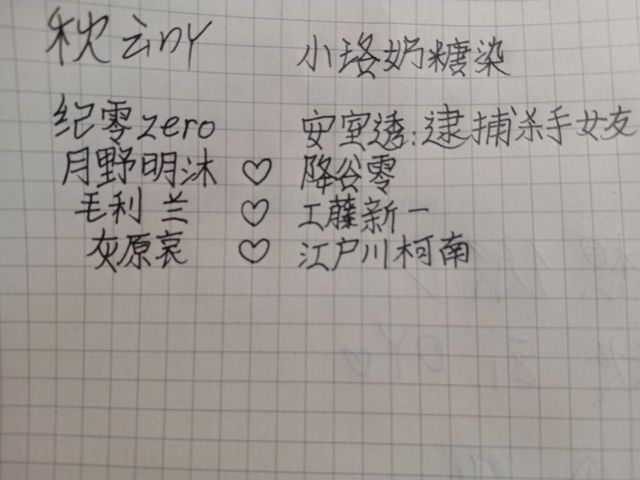 秋云nY 小珞奶糖染
纪零zero 安室透:逮捕杀手女友
月野明沐 ♡ 降谷零
毛利兰 ♡ 工藤新一
灰原哀 ♡ 江户川柯南